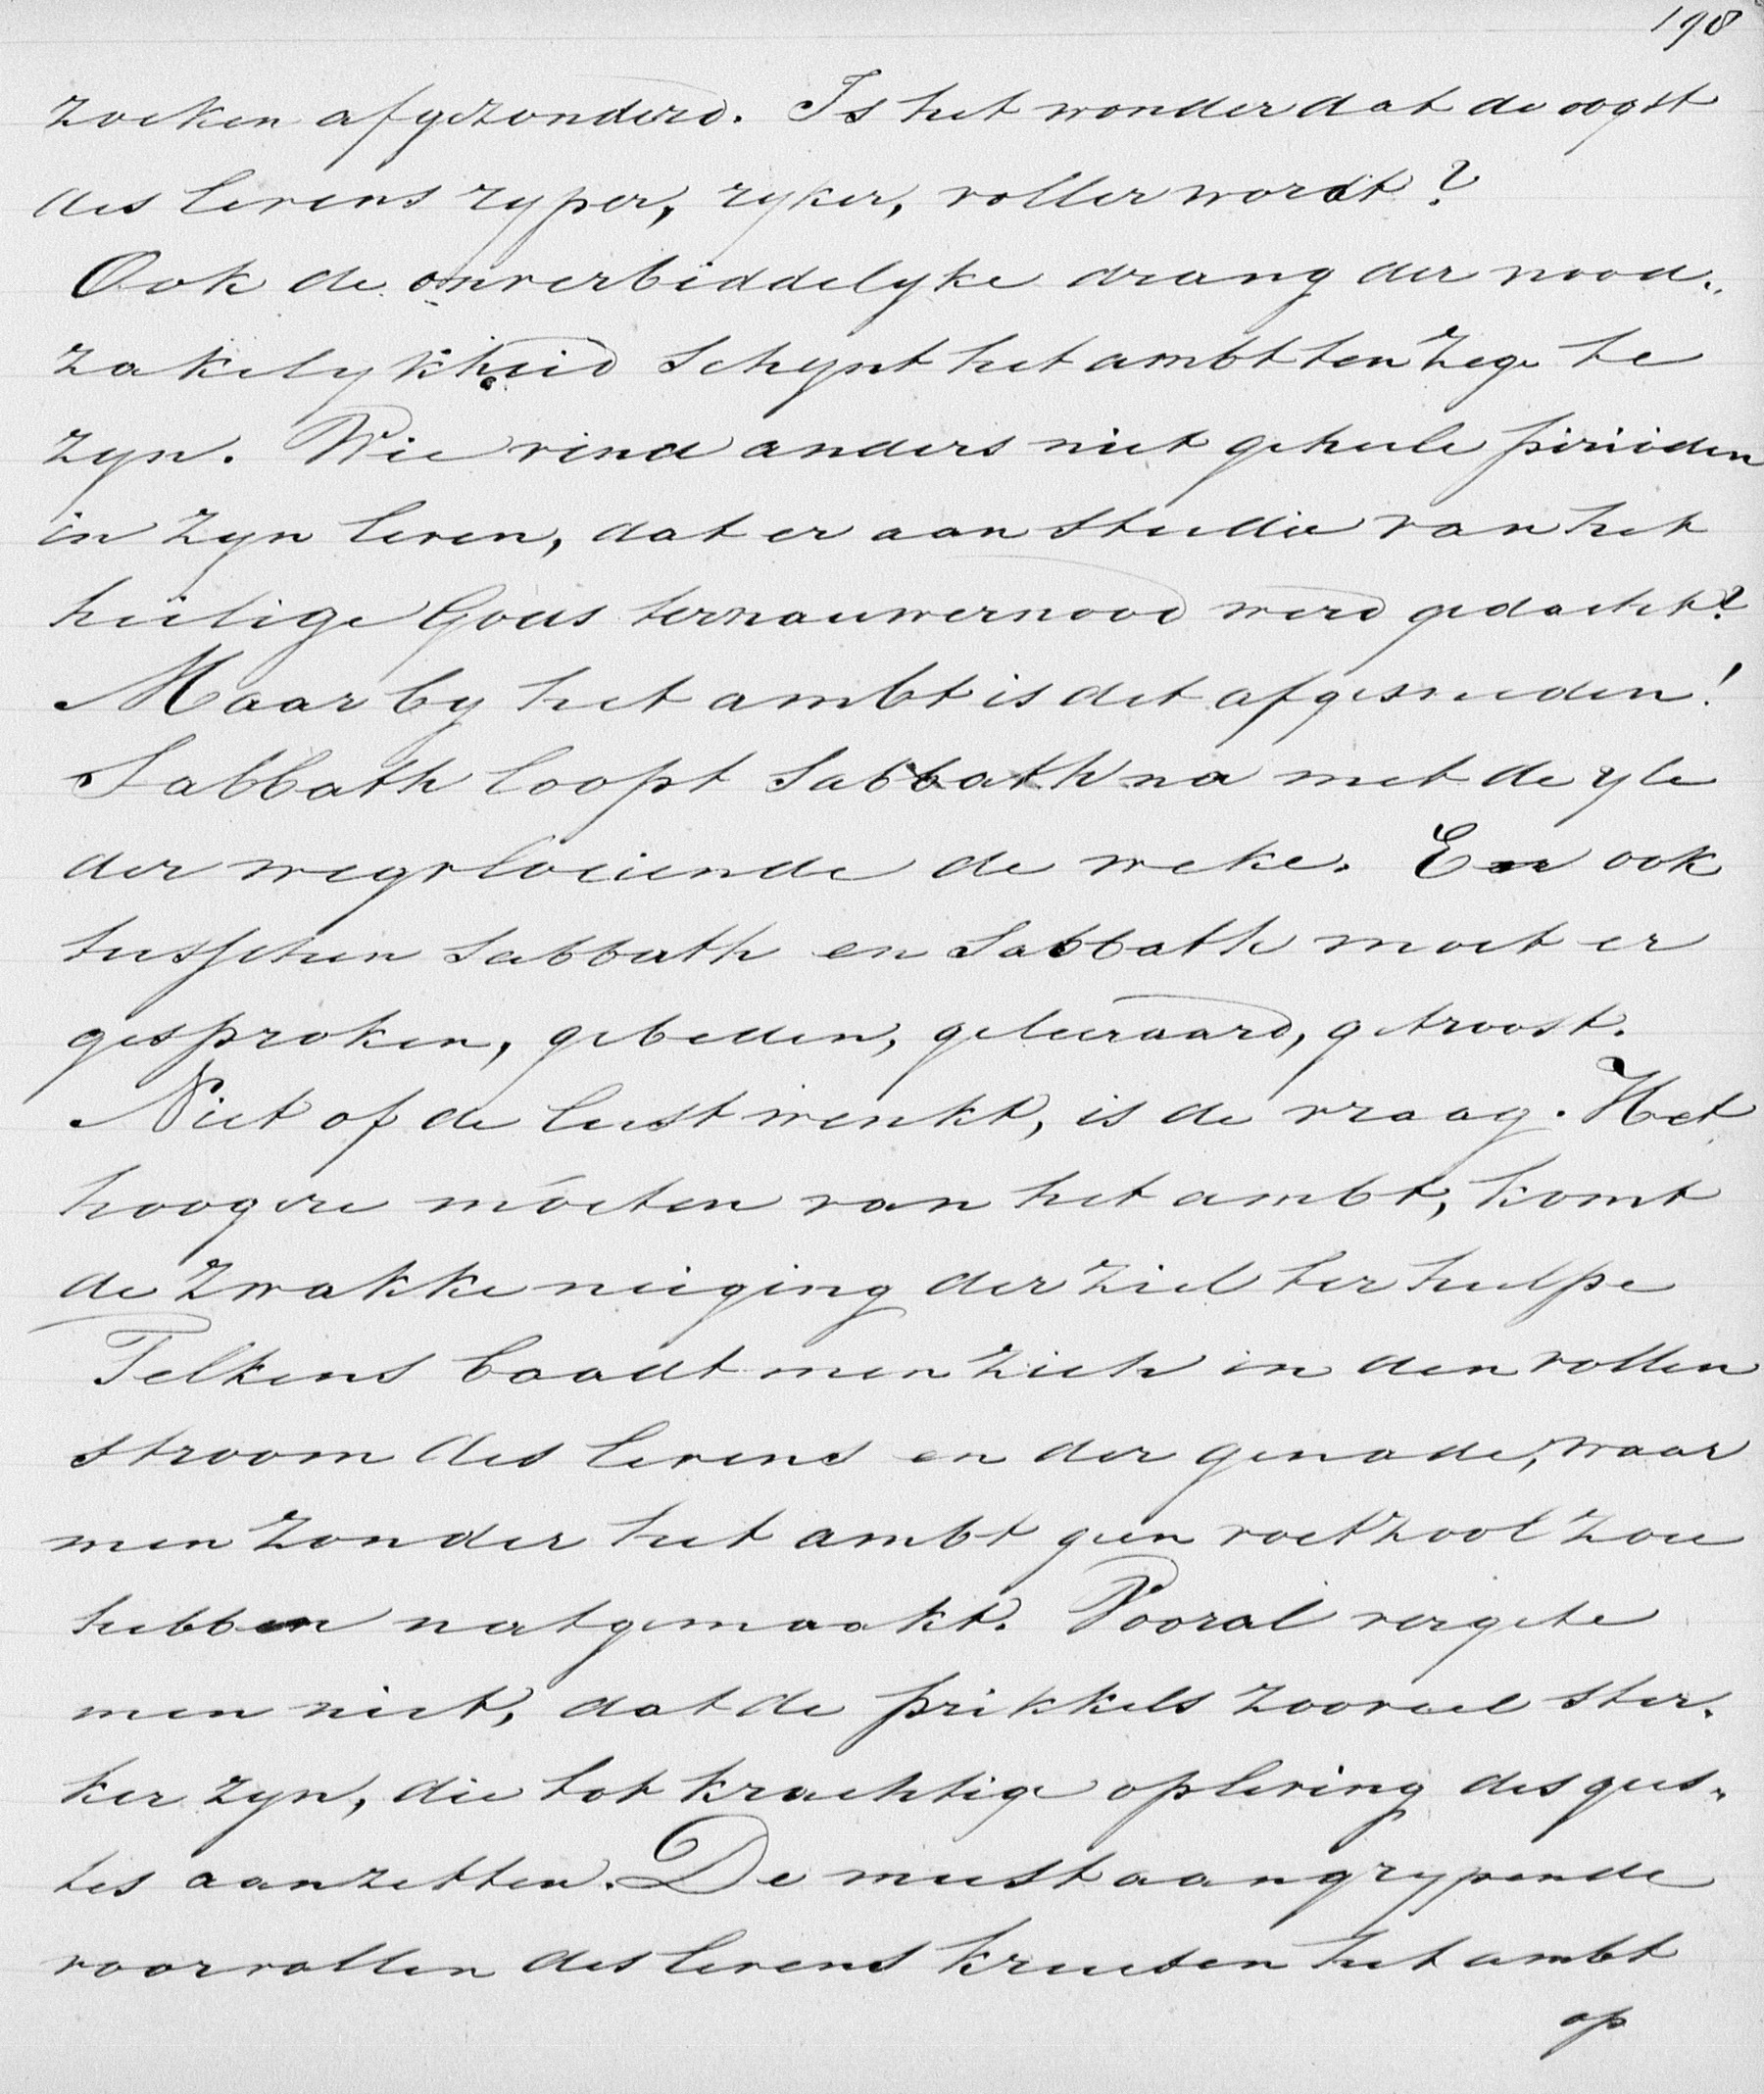 198
zoeken afgezonderd. Is het wonder dat de oogst
des levens ryper, ryker, voller wordt?
Ook de onverbiddelyke drang der nood„
zakelykheid schynt het ambt ten zege te
zyn. Wie vind anders niet geheele perioden
in zyn leven, dat er aan studie van het
heilige Gods ternauwernood werd gedacht?
Maar by het ambt is dit afgesneden!
Sabbath loopt Sabbath na met de yle
der wegvloeiende de weke. En ook
tusschen Sabbath en Sabbath moet er
gesproken, gebeden, geleeraard, getroost.
Niet of de lust wenkt, is de vraag. Het
hoogere móeten van het ambt, komt
de zwakke neiging der ziel ter hulpe
Telkens baadt men zich in den vollen
stroom des levens en der genade, waar
men zonder het ambt geen voetzool zou
hebben natgemaakt. Vooral vergete
men niet, dat de prikkels zooveel ster„
ker zyn, die tot krachtige opleving des gees„
tes aanzetten. De meest aangrypende
voorvallen des levens kruisen het ambt
op